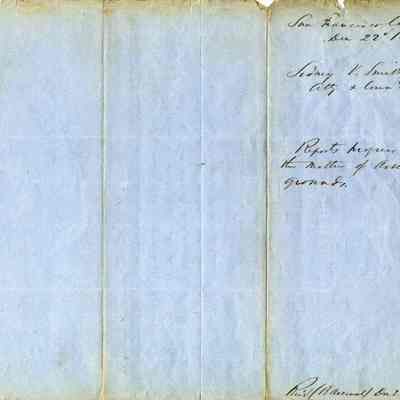 San Francisco Ca
Dec 22d 1
Sidney V. Smith
Atty & Coun
Reports progress
the matter of
grounds.
Rec'd